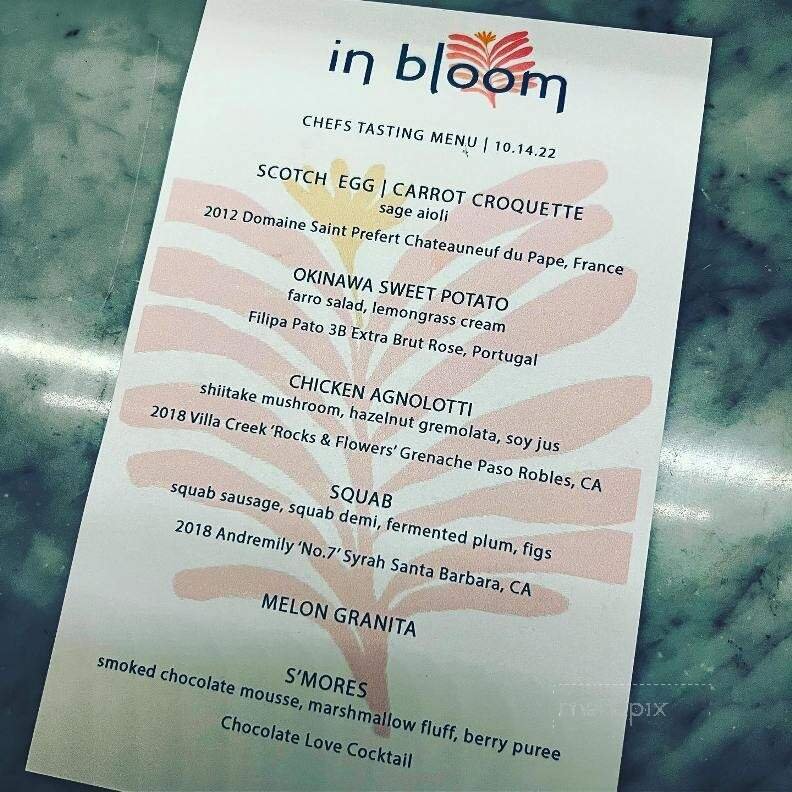 in bloom
CHEFS TASTING MENU | 10.14.22
SCOTCH EGG | CARROT CROQUETTE
sage aioli
2012 Domaine Saint Prefert Chateauneuf du Pape, France
OKINAWA SWEET POTATO
farro salad, lemongrass cream
Filipa Pato 3B Extra Brut Rose, Portugal
CHICKEN AGNOLOTTI
shiitake mushroom, hazelnut gremolata, soy jus
2018 Villa Creek 'Rocks & Flowers' Grenache Paso Robles, CA
SQUAB
squab sausage, squab demi, fermented plum, figs
2018 Andremily 'No.7' Syrah Santa Barbara, CA
MELON GRANITA
S'MORES
smoked chocolate mousse, marshmallow fluff, berry puree
Chocolate Love Cocktail